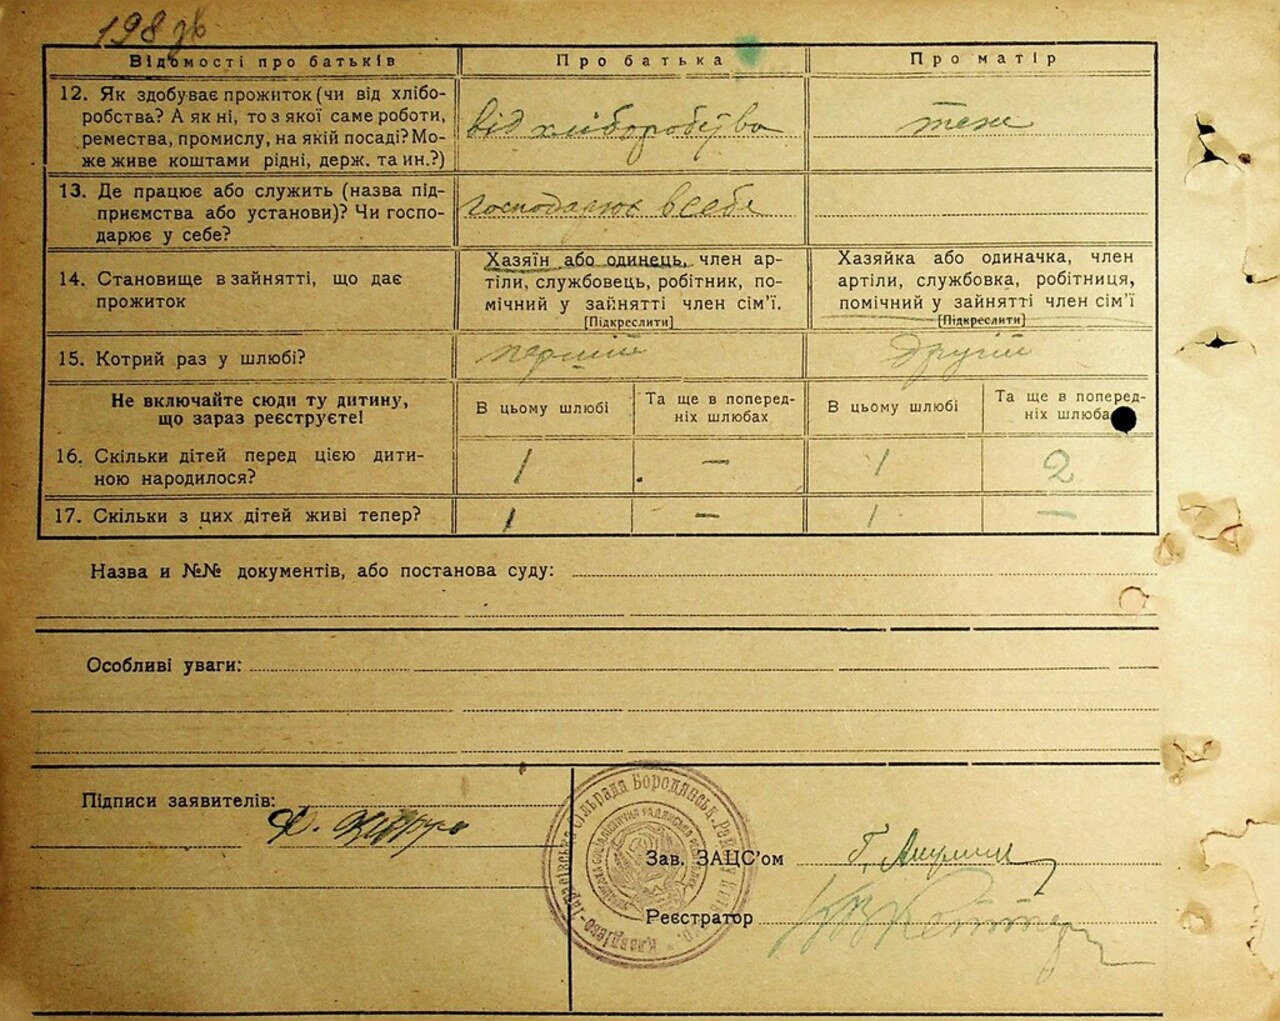 198 зв
Відомості про батьків
Про батька
Про матір
12. Як здобуває прожиток (чи від хлібо-
робства? А як ні, то з якої саме роботи,
ремества, промислу, на якій посаді? Мо-
же живе коштами рідні, держ. та ин.?)
від хліборобства
теж
13. Де працює або служить (назва під-
приємства або установи)? Чи госпо-
дарює у себе?
господарює в себе
14. Становище в зайнятті, що дає
прожиток
Хазяїн або одинець, член ар-
тіли, службовець, робітник, по-
мічний у зайнятті член сім'ї.
[Підкреслити]
Хазяйка або одиначка, член
артіли, службовка, робітниця,
помічний у зайнятті член сім'ї
[Підкреслити]
15. Котрий раз у шлюбі?
перший
другий
Не включайте сюди ту дитину,
що зараз реєструєте!
В цьому шлюбі
Та ще в поперед-
ніх шлюбах
В цьому шлюбі
Та ще в поперед-
ніх шлюба
16. Скільки дітей перед цією дити-
ною народилося?
1
–
1
2
17. Скільки з цих дітей живі тепер?
1
–
1
–
Назва и №№ документів, або постанова суду:
Особливі уваги:
Підписи заявителів:
Зав. ЗАЦС'ом
Реєстратор
сільрада Бородянськ. Рай